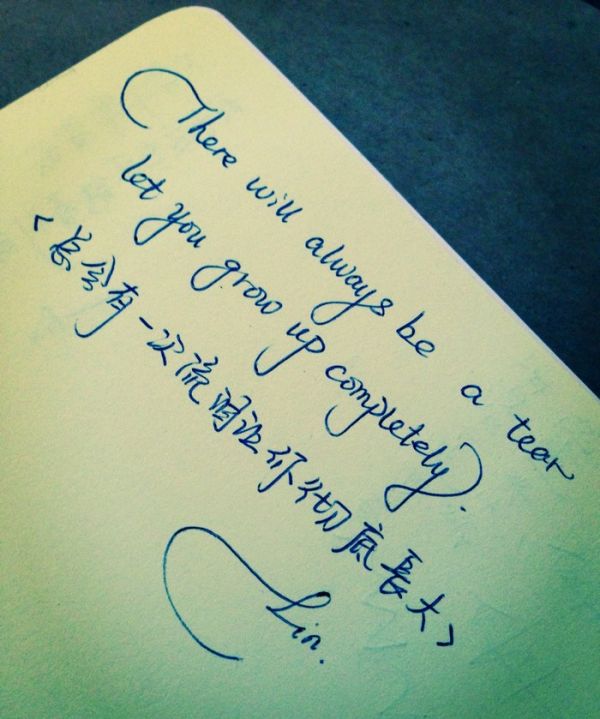 There will always be a tear
let you grow up completely.
<总会有一次流泪让你彻底長大>
Lin.